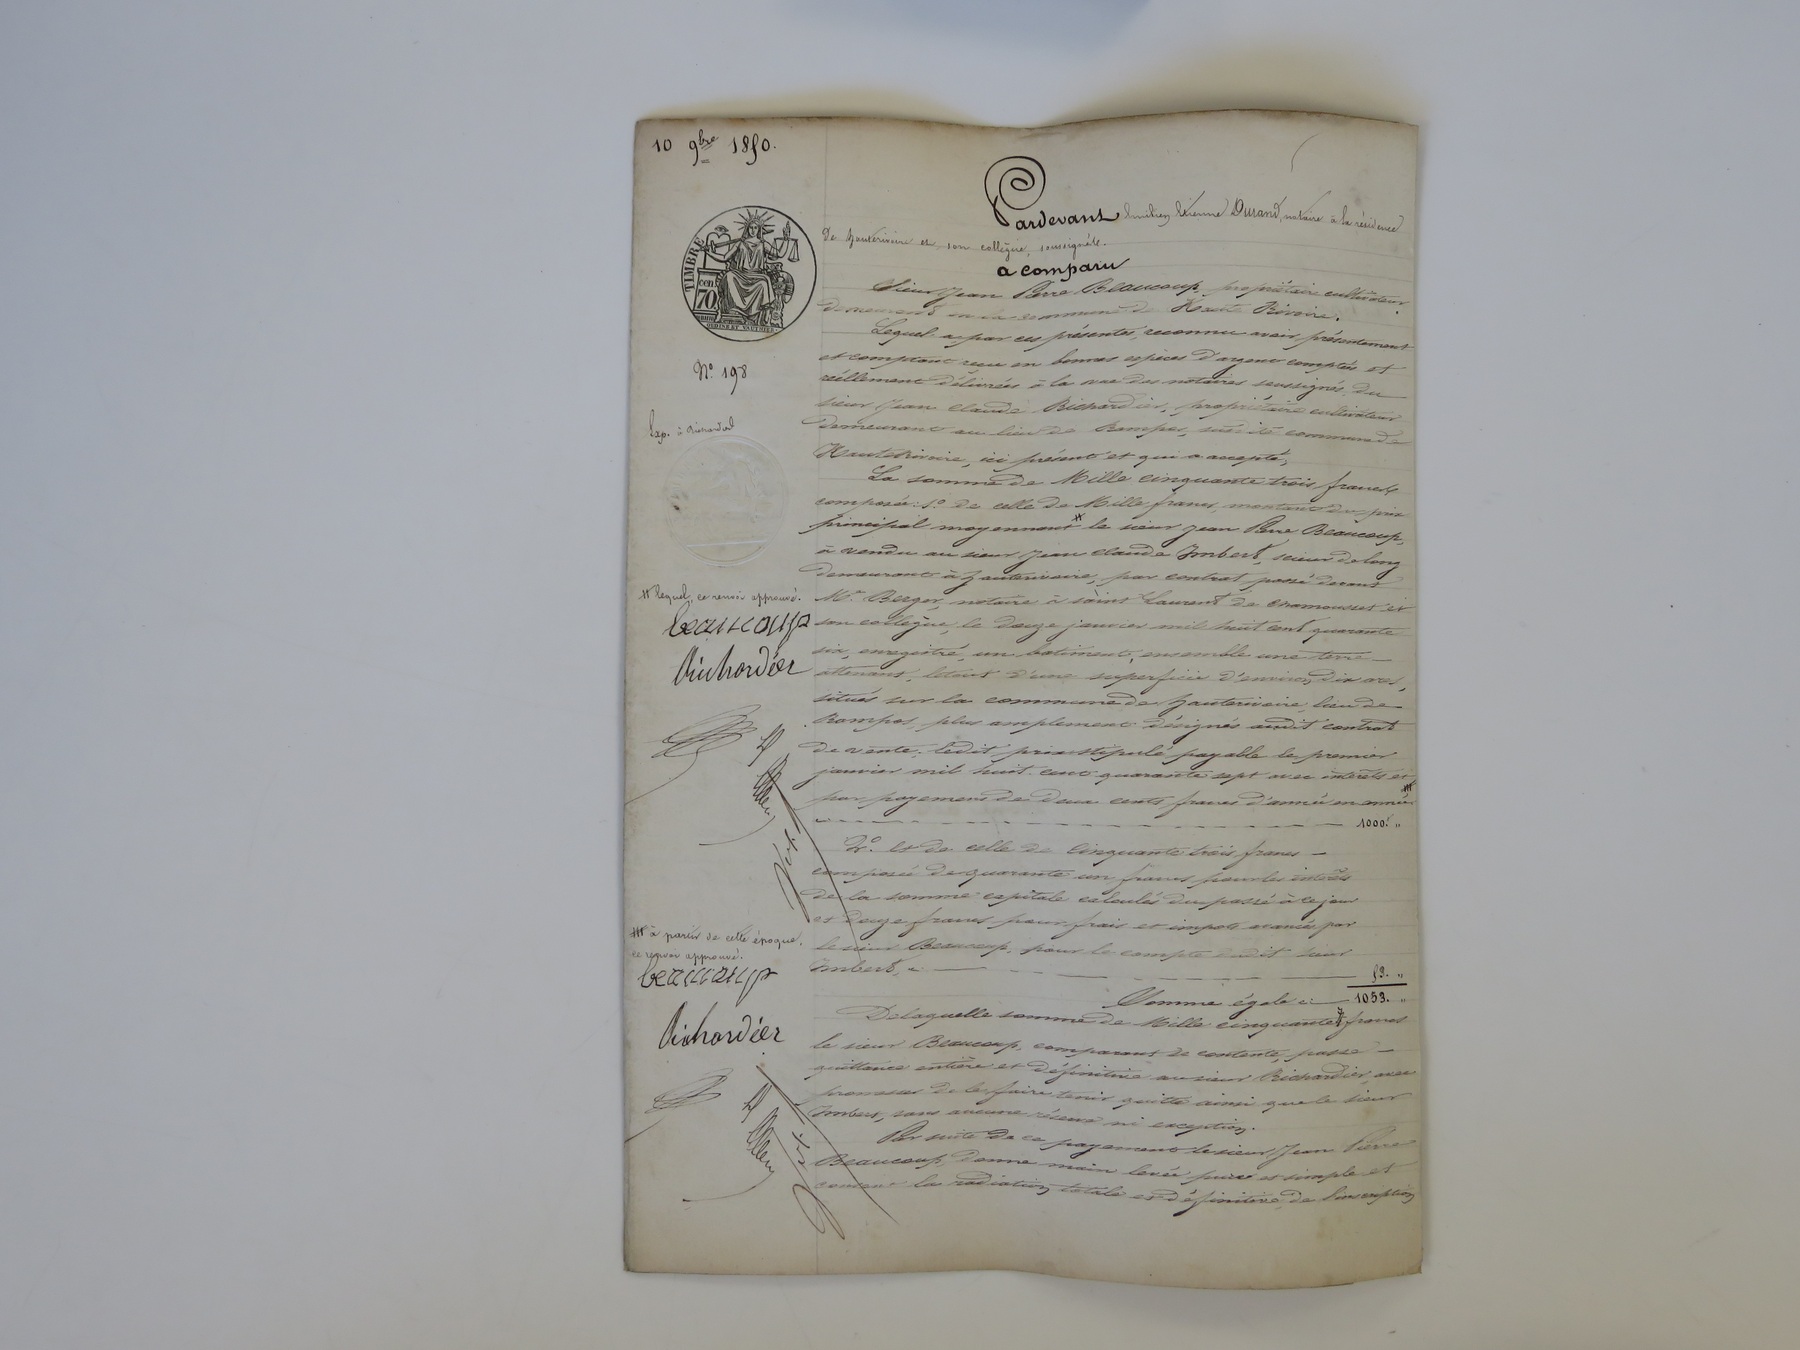 10 9bre 1850.
TIMBRE
cen
70
N° 198
Exp. à Richardier
# lequel, ce renvoi approuvé.
beaucoup
Richardier
### à partir de cette époque,
ce renvoi approuvé.
beaucoup
Richardier
Pardevant Emilien Etienne Durand, notaire à la résidence
De hauterivoire et son collègue, soussignés.
a comparu
Sieur Jean Pierre Beaucoup, propriétaire cultivateur
demeurant en la commune de Haute Rivoire.
Lequel a par ces présentes, reconnu avoir présentement
et comptant reçu en bonnes espèces d'argent comptés et
réellement délivrées à la vue des notaires soussignés du
sieur Jean Claude Richardier, propriétaire cultivateur
demeurant au lieu de Rampos, susdite commune de
Hauterivoire, ici présent et qui a accepté,
La somme de Mille cinquante trois francs
composée: 1° de celle de Mille francs, montant du prix
principal moyennant # le sieur Jean Pierre Beaucoup,
à vendu au sieur Jean Claude Imbert, scieur de long
demeurant à hauterivoire, par contrat passé devant
Me Berger, notaire à saint Laurent de chamousset et
son collègue, le douze janvier mil huit cent quarante
six, enregistré, un batiment, ensemble une terre
attenant, le tout d'une superficie d'environ dix ares,
situés sur la commune de hauterivoire, lieu de
Rampos, plus amplement désignés audit contrat
de vente; ledit prix stipulé payable le premier
janvier mil huit cent quarante sept avec intérêts et
par payement de deux cents francs d'année en année ###
1000. "
2° et de celle de cinquante trois francs
composée de quarante un francs pour les intérêts
de la somme capitale calculés du passé à ce jour
et douze francs pour frais et impots avancés par
le sieur Beaucoup, pour le compte dudit sieur
Imbert, ci 53. "
Somme égale ci 1053. "
De laquelle somme de Mille cinquante francs
le sieur Beaucoup, comparant se contente, passe
quittance entière et définitive au sieur Richardier, avec
promesse de le faire tenir quitte ainsi que le sieur
Imbert, sans aucune réserve ni exception.
Par suite de ce payement le sieur Jean Pierre
Beaucoup, donne main levée pure et simple et
consent la radiation totale et définitive de l'inscription